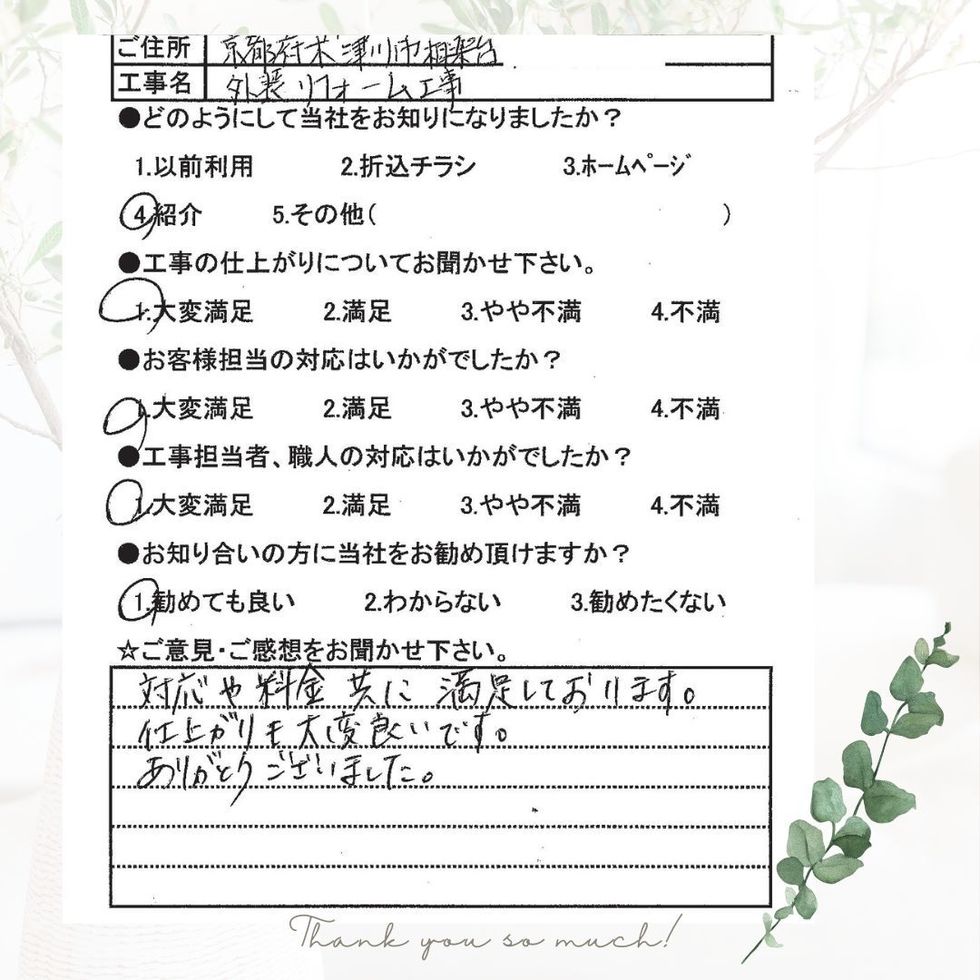 ご住所 京都府木津川市相楽台
工事名 外装リフォーム工事
●どのようにして当社をお知りになりましたか？
1.以前利用 2.折込チラシ 3.ﾎｰﾑﾍﾟｰｼﾞ
4.紹介 5.その他( )
●工事の仕上がりについてお聞かせ下さい。
1.大変満足 2.満足 3.やや不満 4.不満
●お客様担当の対応はいかがでしたか？
1.大変満足 2.満足 3.やや不満 4.不満
●工事担当者、職人の対応はいかがでしたか？
1.大変満足 2.満足 3.やや不満 4.不満
●お知り合いの方に当社をお勧め頂けますか？
1.勧めても良い 2.わからない 3.勧めたくない
☆ご意見・ご感想をお聞かせ下さい。
対応や料金共に満足しております。
仕上がりも大変良いです。
ありがとうございました。
Thank you so much!